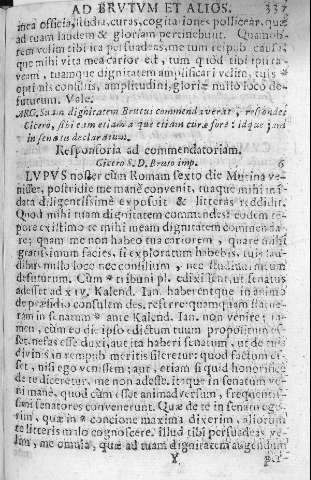 AD BRVTVM ET ALIOS. 337
mea officia, studia, curas, cogitationes pollicear. quæ
ad tuam laudem & gloriam pertinebunt. Quamob-
rem velim tibi ita persuadeas, me tum reipub. causa,
quæ mihi vita mea carior est, tum quòd tibi ipsi fa-
veam, tuamque dignitatem amplificari velim, tuis
optimis consiliis, amplitudini, gloriæ nullo loco de-
futurum. Vale.
ARG. Suam dignitatem Brutus commendaverat, respondet
Cicero, sibi eam etiam atque etiam curæ fore: idque jam
in senatu declaratum.
Responsoria ad commendatoriam.
Cicero S. D. Bruto imp. 6
LVPUS noster cùm Romam sexto die Mutina ve-
nisset, postridie me manè convenit, tuaque mihi man-
data diligentissimè exposuit & litteras reddidit.
Quod mihi tuam dignitatem commendes: eodem tem-
pore existimo te mihi meam dignitatem commenda-
re; quam me non habeo tua cariorem, quare mihi
gratissimum facies, si exploratum habebis, tuis lau-
dibus nullo loco nec consilium, nec studium meum
defuturum. Cùm * tribuni pl. edixissent, ut senatus
adesset ad XIV. Kalend. Ian. haberentque in animo
de præsidio consulum des. referre: quamquam statue-
ram in senatum * ante Kalend. Ian. non venire; ta-
men, cùm eo die ipso edictum tuum propositum es-
set, nefas esse duxi, aut ita haberi senatum, ut de tuis
divinis in rempub. meritis sileretur: quod factum es-
set, nisi ego venissem; aut, etiam si quid honorificè
de te diceretur, me non adesse. itaque in senatum ve-
ni manè, quod cùm esset animadversum, frequentis-
simi senatores convenerunt. Quæ de te in senatu ege-
rim, quæ in * concione maxima dixerim, aliorum
te litteris malo cognoscere. illud tibi persuadeas ve-
lim, me omnia, quæ ad tuam dignitatem augendum
Y